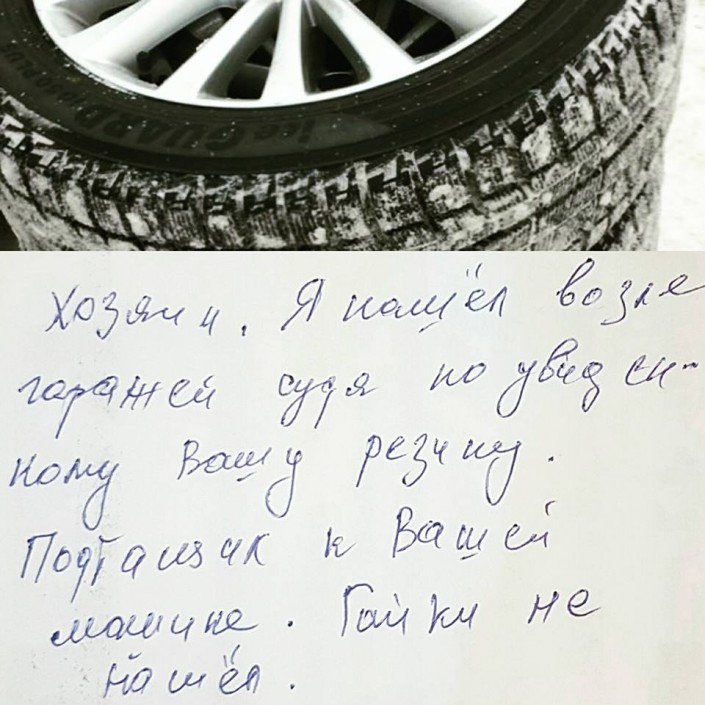 iceGUARD
Хозяин. Я нашёл возле
гаражей судя по увиден-
ному Вашу резину.
Подтащил к Вашей
машине. Гайки не
нашёл.